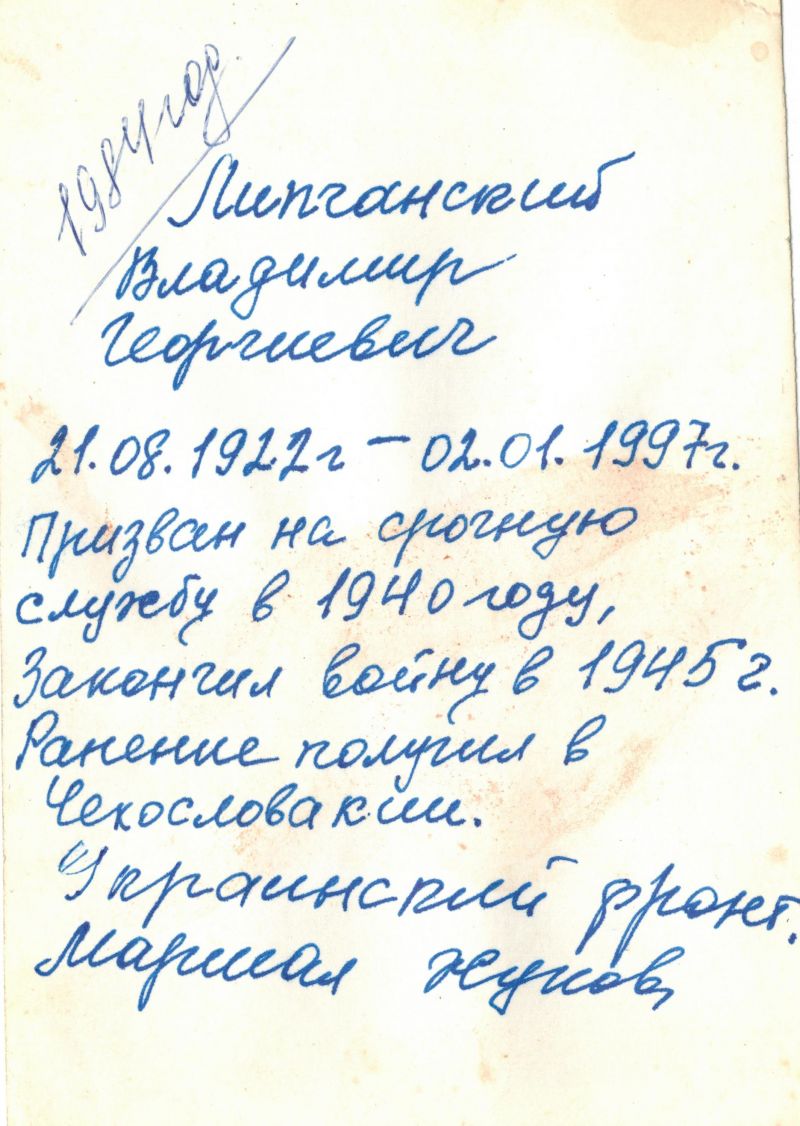 1984 год.
Липчанский
Владимир
Георгиевич
21.08.1922г – 02.01.1997г.
Призван на срочную
службу в 1940 году,
Закончил войну в 1945 г.
Ранение получил в
Чехословакии.
Украинский фронт.
Маршал Жуков,